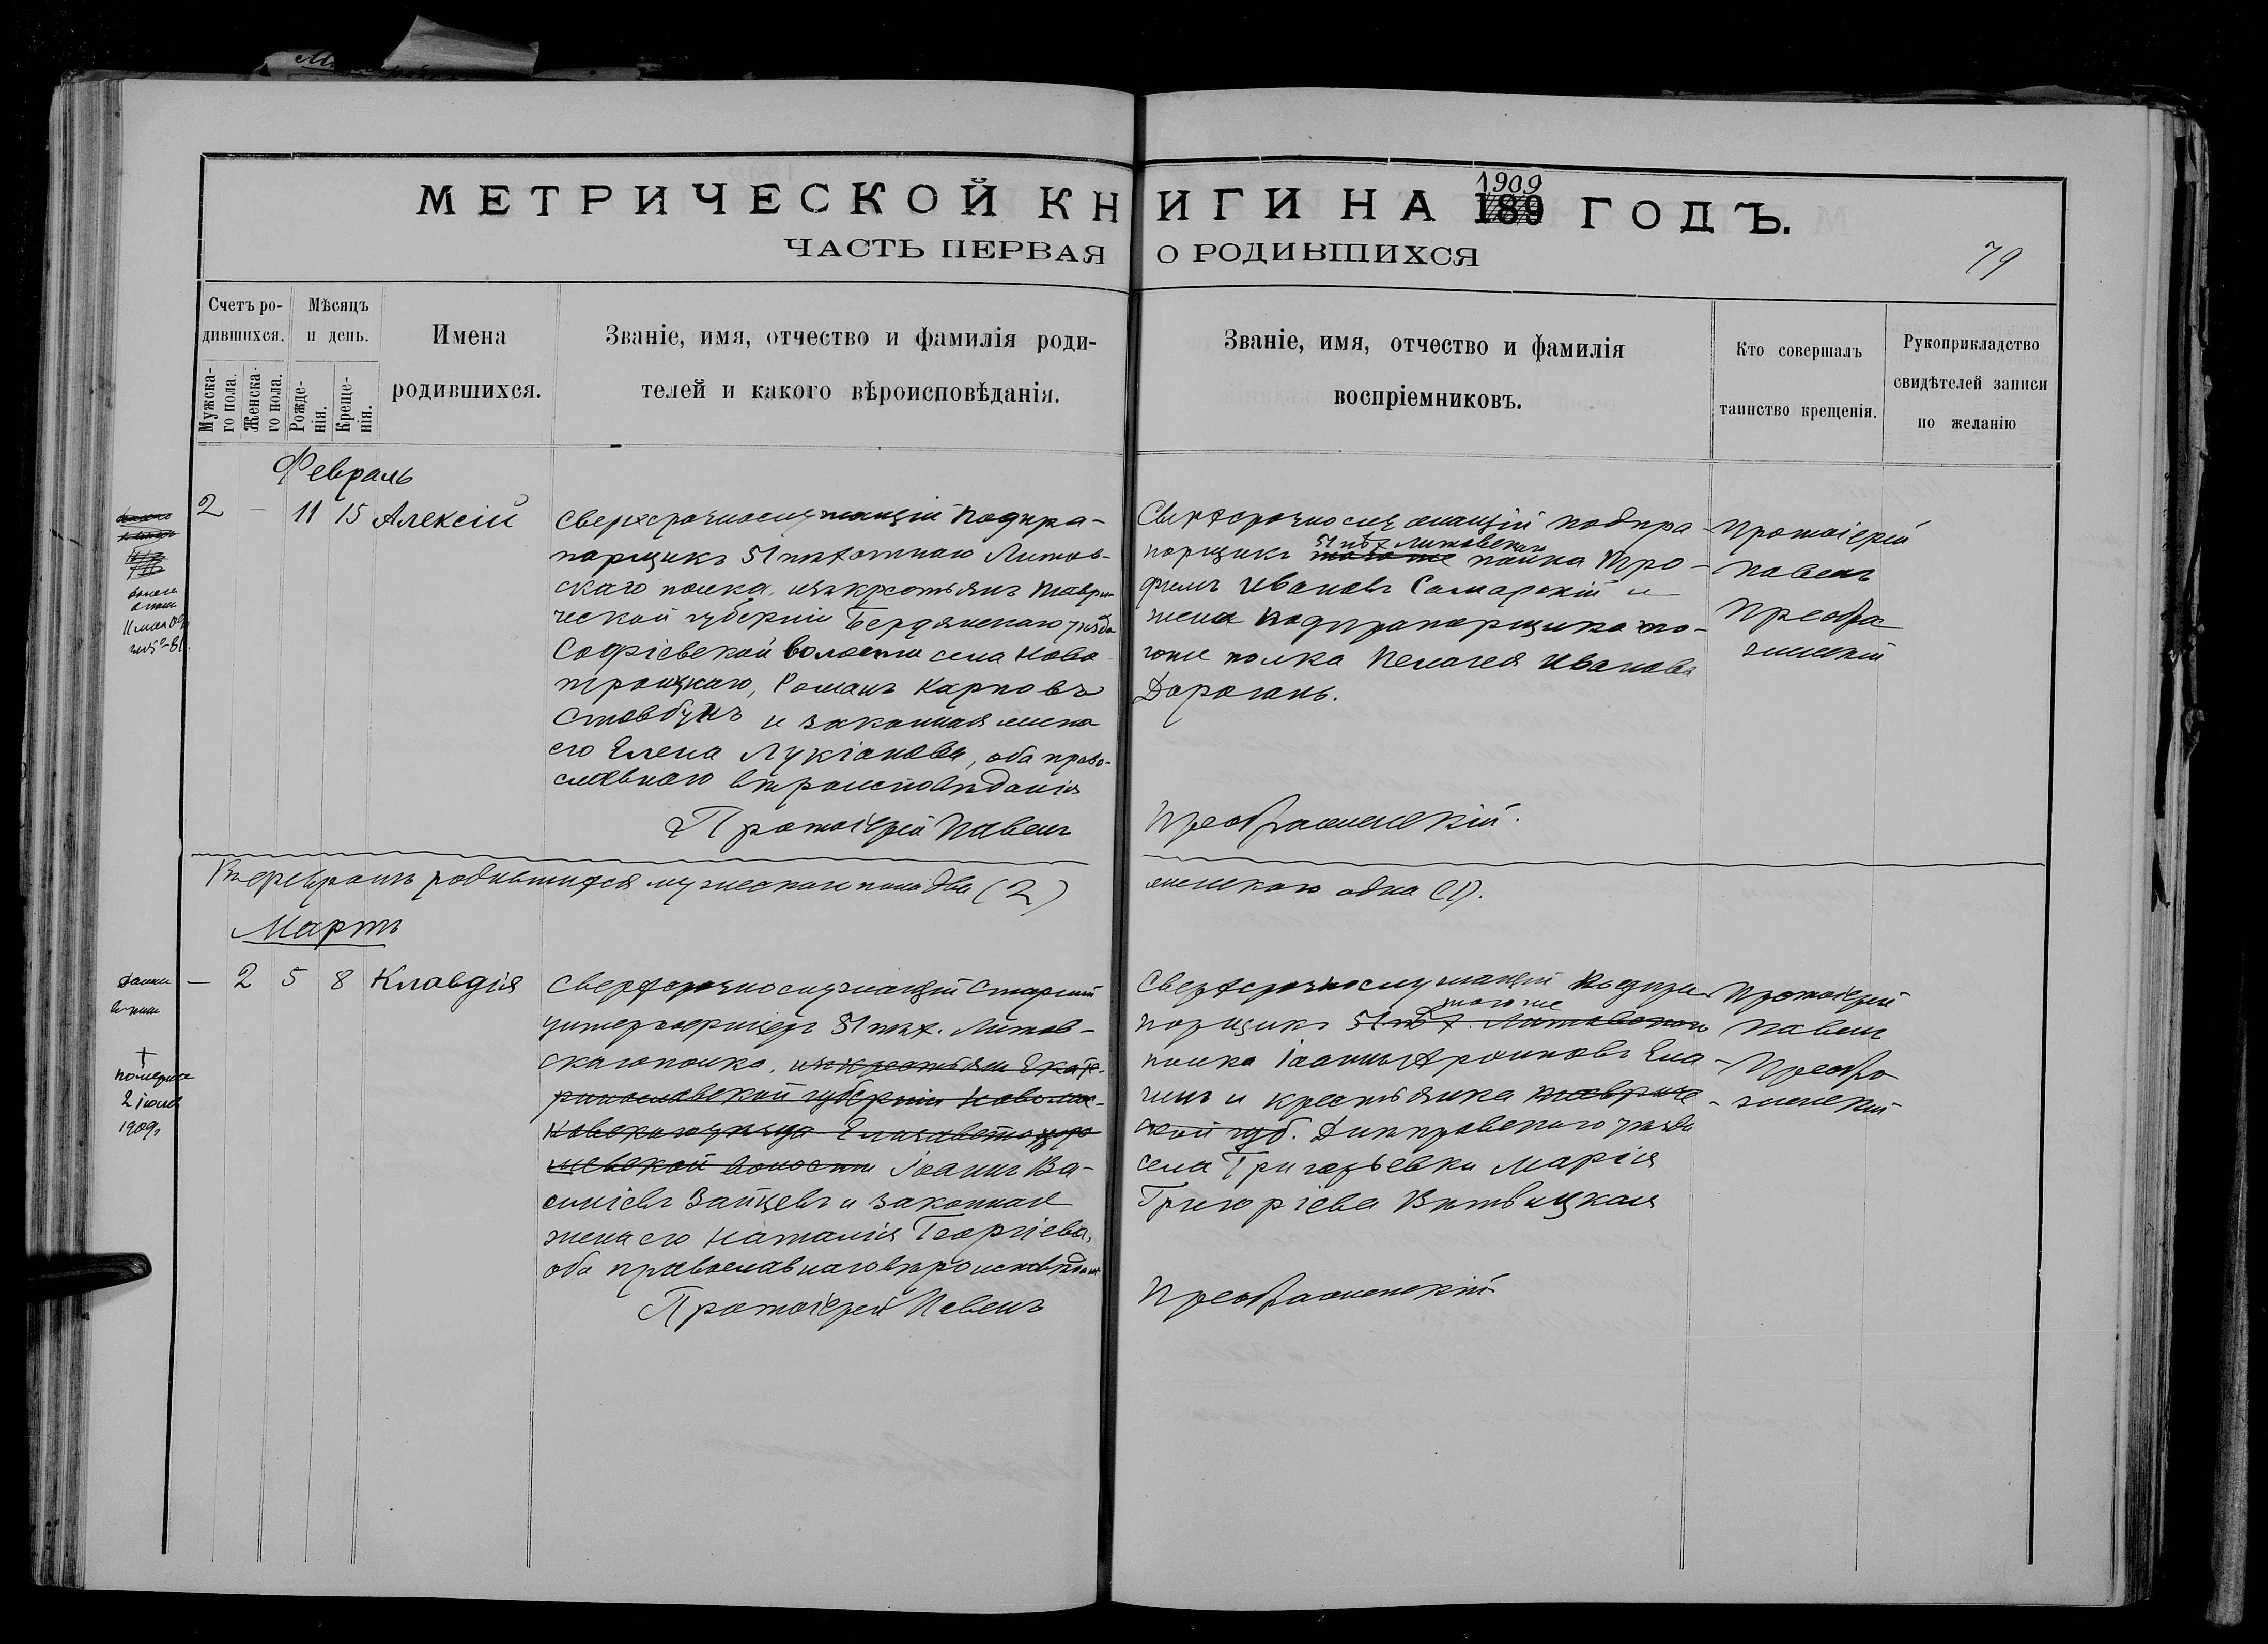 МЕТРИЧЕСКОЙ КНИГИ НА 1909 189 ГОДЪ.
ЧАСТЬ ПЕРВАЯ О РОДИВШИХСЯ
79
Счетъ ро-
дившихся.
Мужска-
го пола.
Женска-
го пола.
Мѣсяцъ
и день.
Рожде-
нія.
Креще-
нія.
Имена
родившихся.
Званіе, имя, отчество и фамилія роди-
телей и какого вѣроисповѣданія.
Званіе, имя, отчество и фамилія
воспріемниковъ.
Кто совершалъ
таинство крещенія.
Рукоприкладство
свидѣтелей записи
по желанію
Февраль
2 — 11 15 Алексій
Сверхсрочнослужащій Подпра-
порщикъ 51 пѣхотнаго Литов-
скаго полка, изъ крестьянъ Таври-
ческой губерніи Бердянскаго уѣзда
Софіевской волости села Ново
троицкаго, Романъ Карповъ
Стовбунъ и законная жена
его Елена Лукіанова, оба право-
славнаго вѣроисповѣданія
Протоіерей Павелъ
Сверхсрочнослужащій подпра-
порщикъ 51 пѣх Литовскаго
того же полка Тро-
фимъ Ивановъ Самарскій и
жена подпрапорщика то-
гоже полка Пелагея Иванова
Дорогань.
Преображенскій.
Протоіерей
Павелъ
Преобра
женскій
Въ февралѣ родившихся мужескаго пола два (2)
женскаго одна (1).
Мартъ
— 2 5 8 Клавдія
Сверхсрочнослужащій Старшій
унтеръ офицеръ 51 пѣх. Литов-
скаго полка, изъ крестьян Екате-
ринославской губерніи Новомос-
ковскаго уѣзда
волости Іоаннъ Ва-
силіевъ Зайцевъ и законная
жена его Наталія Георгіева,
оба православнаго вѣроисповѣдан
Протоіерей Павелъ
Сверхсрочнослужащій Подпра
того же
порщикъ 51 пѣх. Литовскаго
полка Іоаннъ
и крестьянка Тавриче-
ской губ. Днѣпровскаго уѣзда
села Григорьевки Марія
Григоріева
Преображенскій
Протоіерей
Павелъ
Преобра
женскій
померла
2 іюля
1909 г